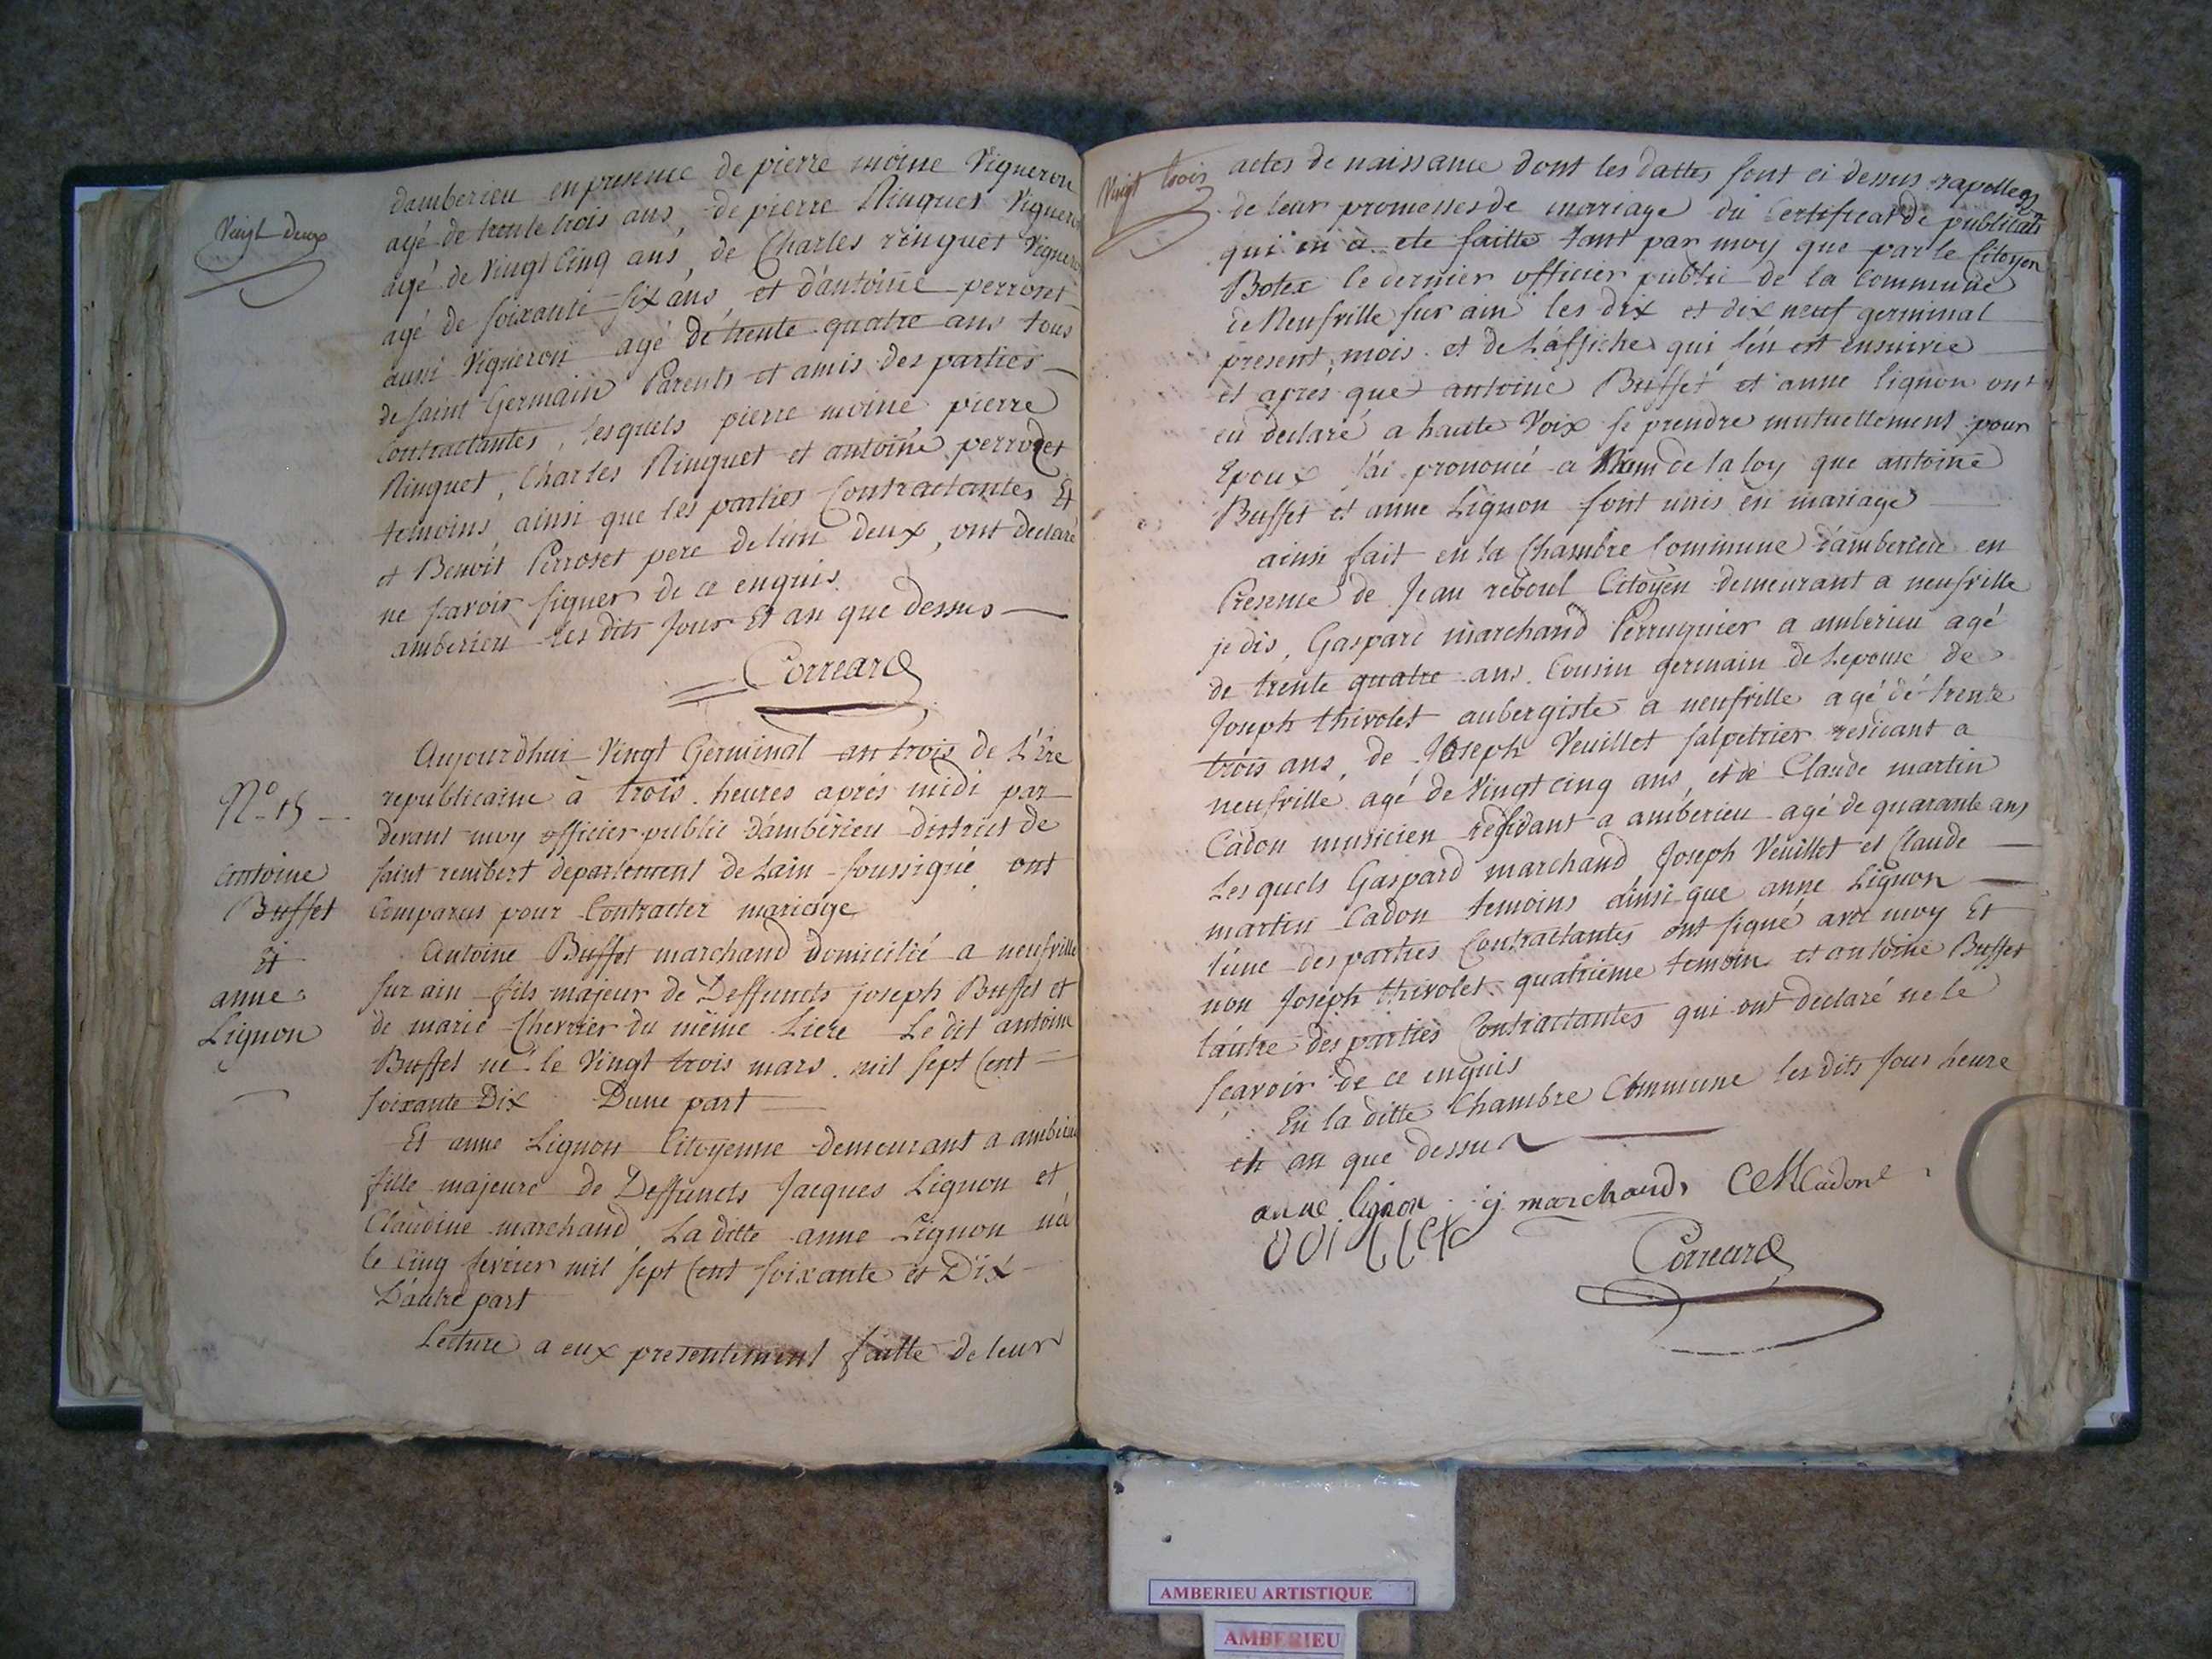 Vingt deux
damberieu en presence de pierre moine Vigneron
agé de trente trois ans, de pierre Ringuet Vigneron
agé de Vingt Cinq ans, de Charles ringuet Vigneron
agé de soixante six ans, et d'antoine perroset
aussi Vigneron agé de trente quatre ans tous
de saint Germain Parents et amis des parties
Contractantes, lesquels pierre moine pierre
Ringuet, Charles Ringuet et antoine perrozet
temoins, ainsi que les parties Contractantes Et
et Benoit Perroset pere de lun deux, ont declaré
ne savoir signer de ce enquis.
amberieu les dits Jour Et an que dessus
Correard
N.° 15
antoine
Buffet
Et
anne
Lignon
Aujourdhui Vingt Germinal an trois de L'Ere
republicaine à trois heures aprés midi par
devant moy officier public d'amberieu district de
saint rembert departement de Lain soussigné ont
Comparus pour Contracter mariage
Antoine Buffet marchand domicilié a neufville
sur ain fils majeur de Deffuncts joseph Buffet et
de marie Chevrier du même Liere Le dit antoine
Buffet né le Vingt trois mars mil sept Cent
soixante Dix Dune part
Et anne Lignon Citoyenne demeurant a ambérieu
fille majeure de Deffuncts Jacques Lignon et
Claudine marchand La ditte anne Lignon née
le Cinq fevrier mil sept Cent soixante et Dix
D'autre part
Lecture a eux presentement faitte de leur
Vingt trois
actes de naissance dont les dattes sont ci dessus rapollees
de leur promesses de mariage du Certificat de publicati
qui en à ete faitte tant par moy que par le Citoyen
Botex le dernier officier public de la Commune
de Neufville sur ain les dix et dix neuf germinal
present mois et de L'affiche qui s'en est ensuivie
et aprés que antoine Buffet et anne lignon ont
eu declaré a haute Voix se prendre mutuellement pour
Epoux J'ai prononcé a Nom de la loy que antoine
Buffet et anne Lignon sont unis en mariage
ainsi fait en la Chambre Commune d'amberieu en
Presence de Jean reboul Citoyen demeurant a neufville
je dis, Gaspard marchand Perruquier a amberieu agé
de trente quatre ans Cousin germain de Lepouse de
Joseph thivolet aubergiste a neufville agé de trente
trois ans, de Joseph Veuillet salpetrier residant a
neufville agé de Vingt cinq ans, et de Claude martin
Cadon musicien residant a amberieu agé de quarante ans
Lesquels Gaspard marchand Joseph Veuillet et Claude
martin Cadon temoins ainsi que anne Lignon
l'une des parties Contractantes ont signé avec moy Et
non Joseph thivolet quatrieme temoin et antoine Buffet
l'autre des parties Contractantes qui ont declaré ne le
scavoir de ce enquis
En la ditte Chambre Commune les dits Jour heure
et an que dessus
anne lignon g marchand CMCadon
Correard
AMBERIEU ARTISTIQUE
AMBERIEU